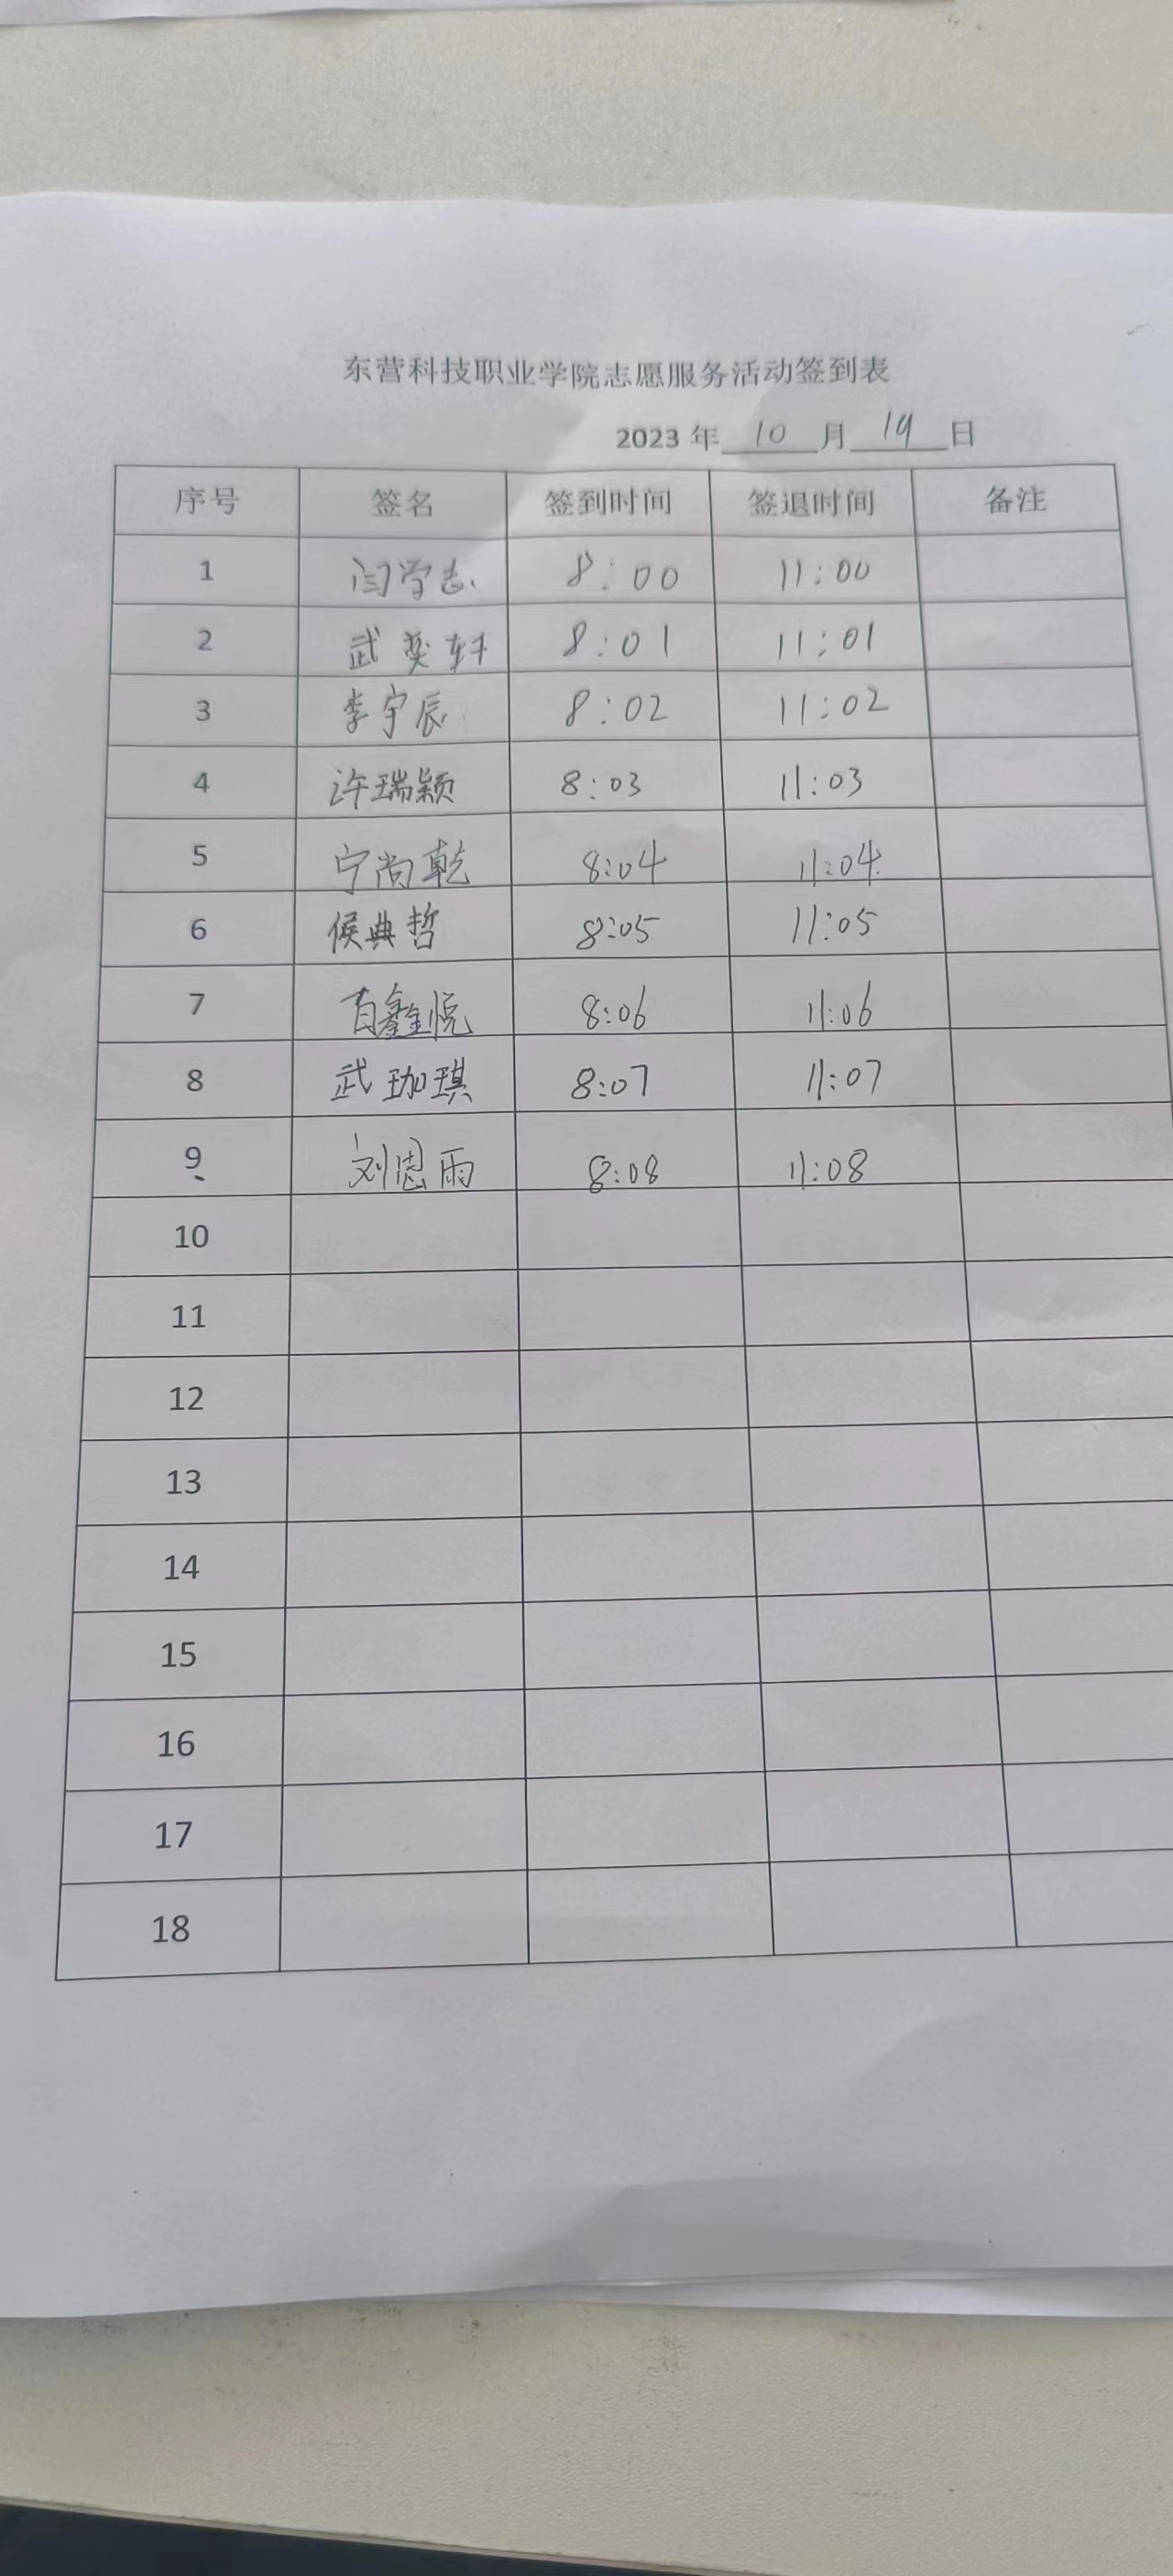 东营科技职业学院志愿服务活动签到表
2023 年 10 月 19 日
序号 签名 签到时间 签退时间 备注
1 闫学志 8:00 11:00
2 武奕轩 8:01 11:01
3 李宇辰 8:02 11:02
4 许瑞颖 8:03 11:03
5 宁尚乾 8:04 11:04
6 候典哲 8:05 11:05
7 鑫悦 8:06 11:06
8 武珈琪 8:07 11:07
9 刘恩雨 8:08 11:08
10
11
12
13
14
15
16
17
18